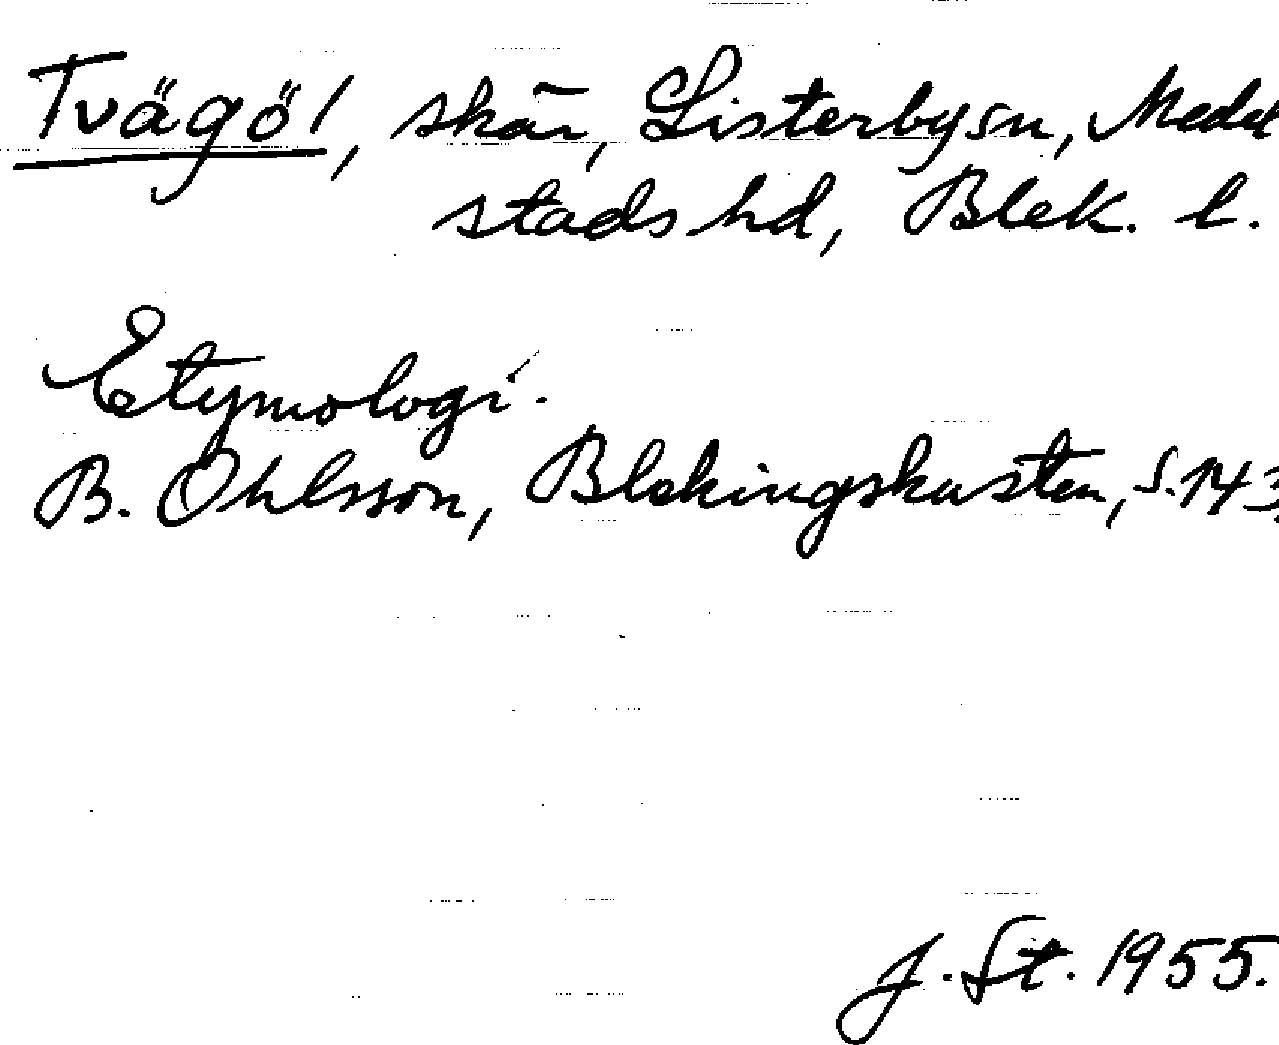 Tvägöl, skär, Listerby sn, Medel
stads hd, Blek. l.
Etymologi.
B. Ohlsson, Blekingskusten, s. 143.
J. St. 1955.